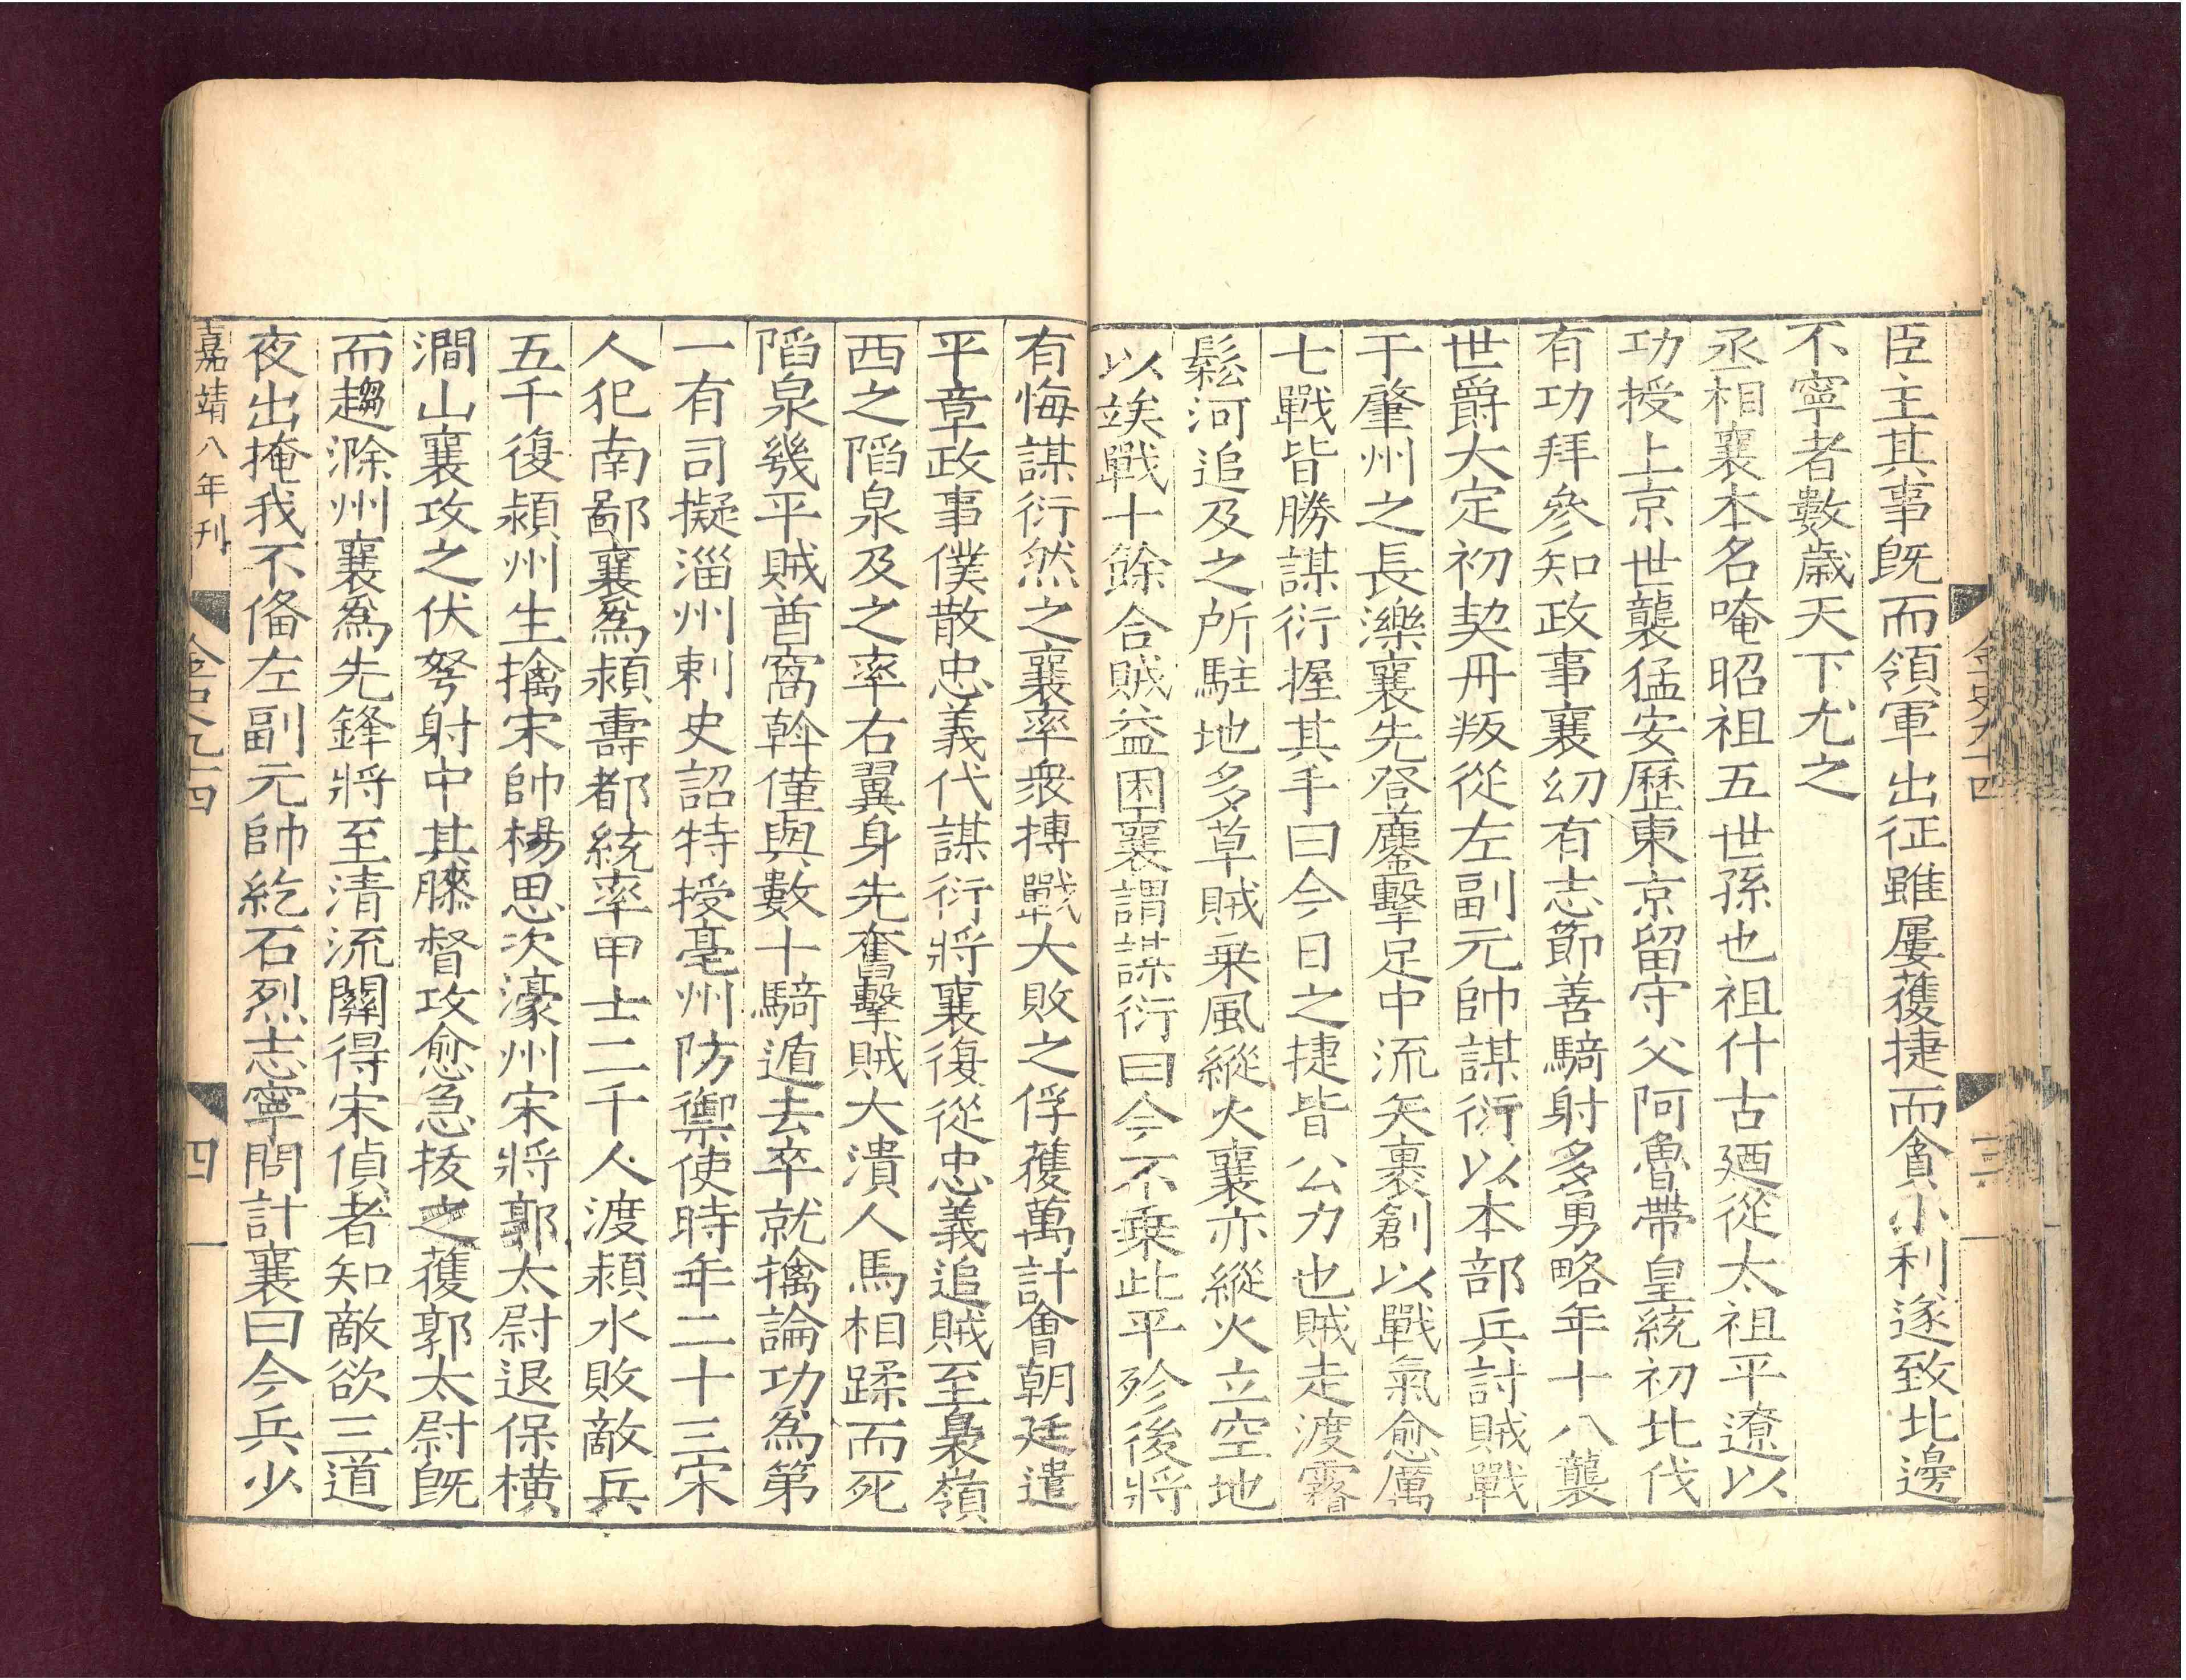 金史九十四
三
臣主其事既而領軍出征雖屢獲捷而貪小利遂致北邊
不寧者數歲天下尤之
丞相襄本名唵昭祖五世孫也祖什古廼從太祖平遼以
功授上京世襲猛安歷東京留守父阿魯帶皇統初北伐
有功拜參知政事襄幼有志節善騎射多勇略年十八襲
世爵大定初契丹叛從左副元帥謀衍以本部兵討賊戰
于肇州之長濼襄先登鏖擊足中流矢裹創以戰氣愈厲
七戰皆勝謀衍握其手曰今日之捷皆公力也賊走渡霿
鬆河追及之所駐地多草賊乗風縱火襄亦縱火立空地
以竢戰十餘合賊益困襄謂謀衍曰今不乗此平殄後將
有悔謀衍然之襄率衆搏戰大敗之俘獲萬計會朝廷遣
平章政事僕散忠義代謀衍將襄復從忠義追賊至裊嶺
西之陷泉及之率右翼身先奮擊賊大潰人馬相蹂而死
陷泉幾平賊酋窩斡僅與數十騎遁去卒就擒論功爲第
一有司擬淄州刺史詔特授亳州防禦使時年二十三宋
人犯南鄙襄爲潁壽都統率甲士二千人渡潁水敗敵兵
五千復潁州生擒宋帥楊思次濠州宋將郭太尉退保橫
澗山襄攻之伏弩射中其膝督攻愈急拔之獲郭太尉既
而趨滁州襄爲先鋒將至清流關得宋偵者知敵欲三道
夜出掩我不備左副元帥紇石烈志寧問計襄曰今兵少
嘉靖八年刊
金史九十四
四